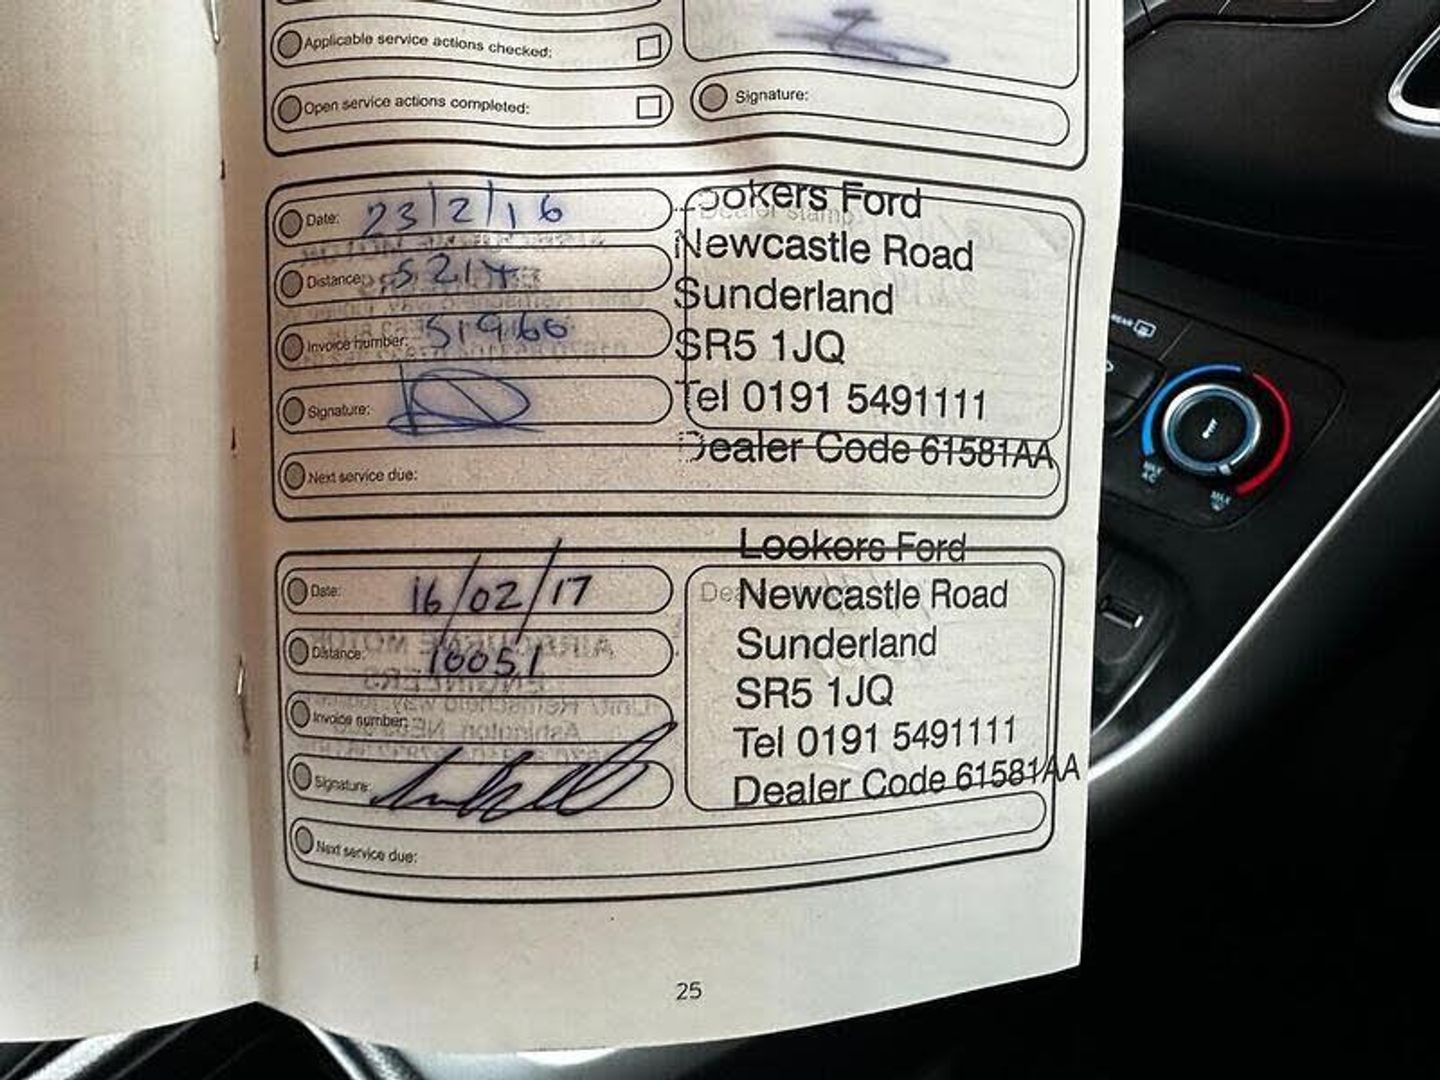 Applicable service actions checked:
Open service actions completed:
Signature:
Date: 23/2/16
Distance:
Invoice number: 51966
Signature:
Next service due:
Dealer stamp
Lookers Ford
Newcastle Road
Sunderland
SR5 1JQ
Tel 0191 5491111
Dealer Code 61581AA
Date: 16/02/17
Distance: 10051
Invoice number:
Signature:
Next service due:
Lookers Ford
Newcastle Road
Sunderland
SR5 1JQ
Tel 0191 5491111
Dealer Code 61581AA
25
REAR
MAX
A/C
MAX